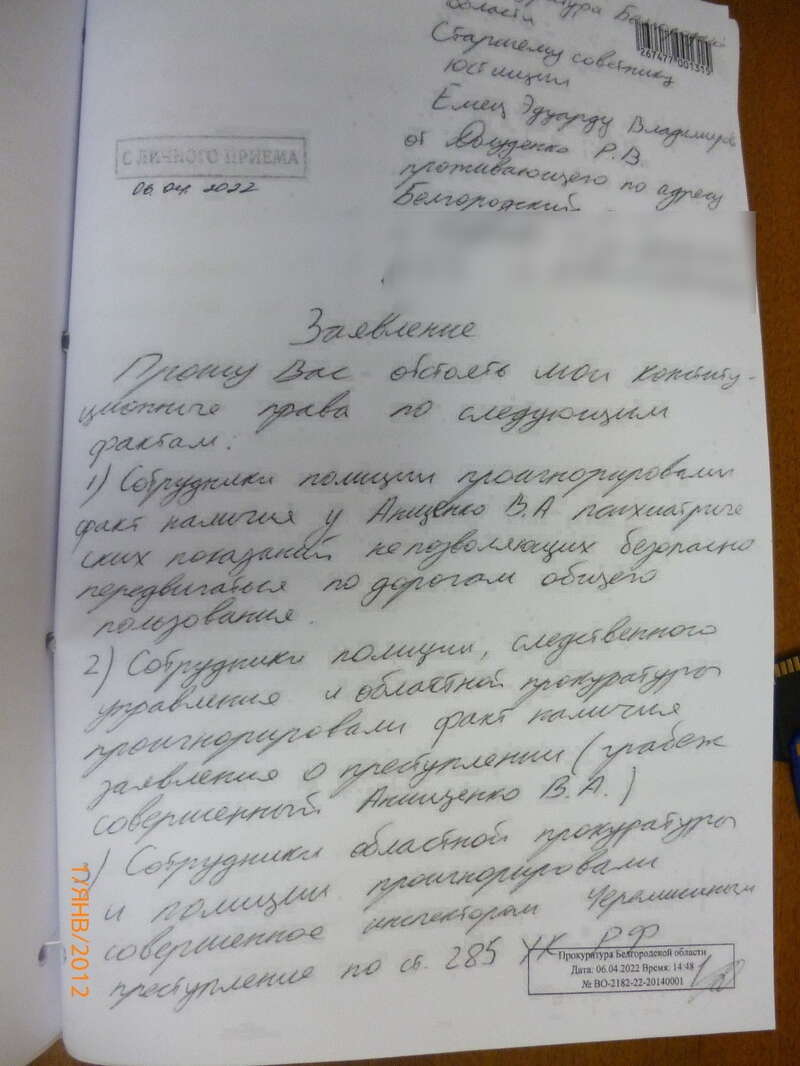 Прокуратура Белгородской
области
267477 001315
Старшему советнику
юстиции
Емец Эдуарду Владимиров
от Р.В.
проживающего по адресу
Белгородский
С ЛИЧНОГО ПРИЕМА
06.04.2022
Заявление
Прошу Вас отстоять мои конститу-
ционные права по следующим
фактам:
1) Сотрудники полиции проигнорировали
факт наличия у Анищенко В.А психиатриче
ских показаний непозволяющих безопасно
передвигаться по дорогам общего
пользования.
2) Сотрудники полиции, следственного
управления и областной прокуратуры
проигнорировали факт наличия
заявления о преступлении (грабеж
совершенный Анищенко В.А.)
) Сотрудники областной прокуратуры
и полиции проигнорировали
совершенное инспектором Черемисиным
преступление по ст. 285 УК РФ
Прокуратура Белгородской области
Дата: 06.04.2022 Время: 14:48
№ ВО-2182-22-20140001
17/ЯНВ/2012